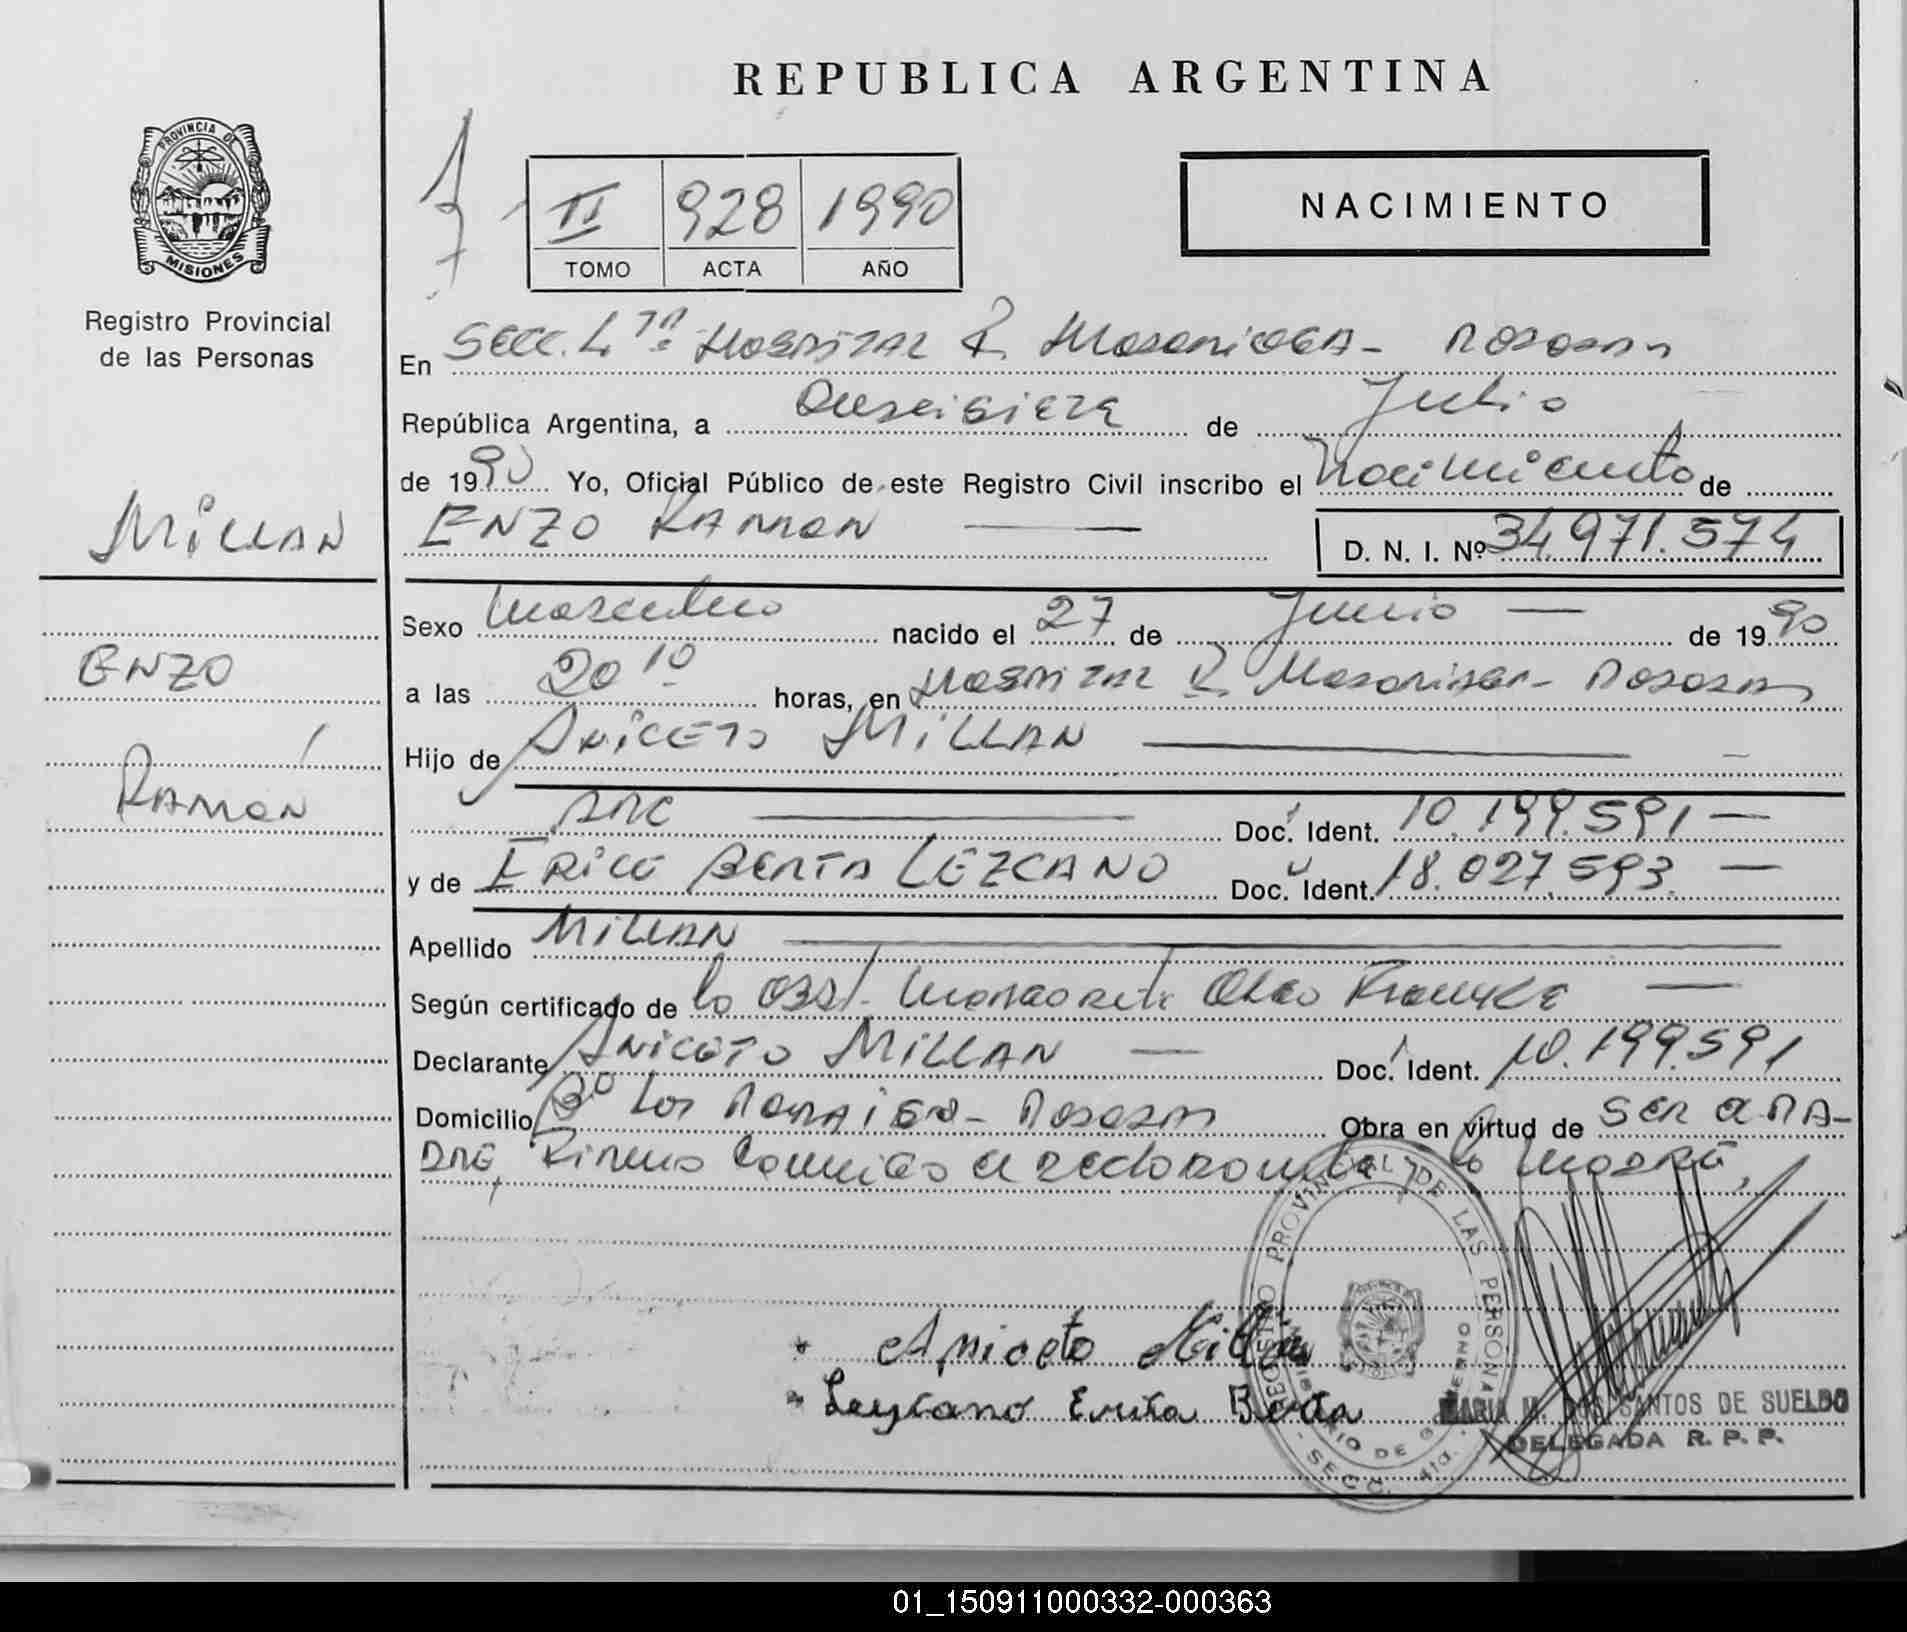 REPUBLICA ARGENTINA
PROVINCIA DE
MISIONES
Registro Provincial
de las Personas
II 928 1990
TOMO ACTA AÑO
NACIMIENTO
En Secc. 4ta Hospital R. Madariaga - Posadas
República Argentina, a Diecisiete de Julio
de 1990 Yo, Oficial Público de este Registro Civil inscribo el Nacimiento de
MILLAN
ENZO RAMON
D. N. I. Nº 34.971.574
Sexo Masculino nacido el 27 de Junio de 1990
ENZO
a las 20 10 horas, en Hospital R. Madariaga - Posadas
Hijo de ANICETO MILLAN
RAMÓN
Doc. Ident. 10.199.591
y de BERTA LEZCANO Doc. Ident. 18.027.593
Apellido MILLAN
Según certificado de la Obst.
Declarante ANICETO MILLAN Doc. Ident. 10.199.591
Domicilio Bº Los - Posadas Obra en virtud de ser el pa-
dre, Firman la madre,
Aniceto Millan
Lezcano Berta
REGISTRO PROVINCIAL DE LAS PERSONAS
MINISTERIO DE GOBIERNO
- SECC. 4ta. -
MARIA M. DOS SANTOS DE SUELDO
DELEGADA R. P. P.
01_150911000332-000363